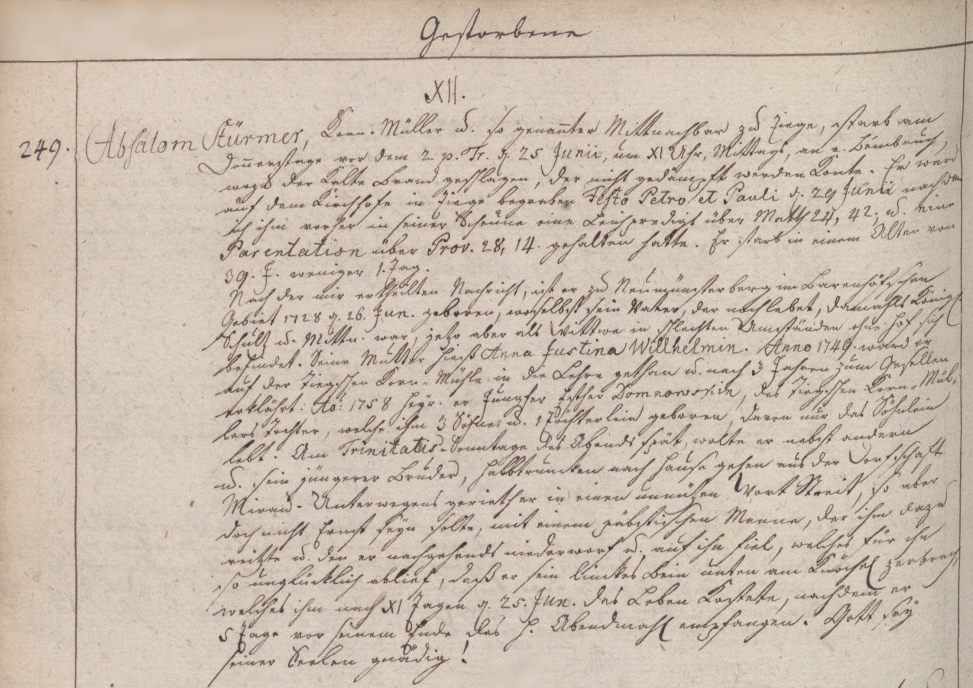 Gestorbene
XII.
249. Absalom Stürmer, Korn-Müller u. so genanter Mittnachbar zu Ziege, starb am
Donnerstage vor dem 2. p. Tr. d. 25 Junii, um XI Uhr, Mittags, an e. Beinbruch,
wozu der Kalte Brand geschlagen, der nicht gedämpft werden konte. Er ward
auf dem Kirchhofe in Ziege begraben Festo Petro et Pauli d. 29 Junii nachdem
ich ihm vorher in seiner Scheune eine Leichpredigt über Matth 24, 42. u. eine
Parentation über Prov. 28, 14. gehalten hatte. Er starb in einem Alter von
39. J. weniger 1. Tag.
Nach der mir ertheilten Nachricht, ist er zu Neumünsterberg im Barenhöfschen
Gebiet 1728 d. 26. Jun. geboren, woselbst sein Vater, der noch lebet, damahls Königl
Schultz u. Mittn. war, jetzo aber als Wittwe in schlechten Umständen ohne Hof sich
befindet. Seine Mutter hiess Anna Justina Willhelmin. Anno 1749. ward er
auf der Ziegschen Korn-Mühle in die Lehre gethan u. nach 3 Jahren zum Gesellen
erklährt. Ao: 1758 heyr. er Jungfer Esther Domnowskin, des Ziegschen Korn-Mül-
lers Tochter, welche ihm 3 Söhne u. 1 Töchterlein geboren, davon nur das Söhnlein
lebt. Am Trinitatis-Sonntage des Abends spät, wolte er nebst andern
u. sein jüngerer Bruder, halbtruncken nach Hause gehen aus der Dorfschaft
Mirau. Unterwegens gerieth er in einen unnützen Wort Streit, so aber
doch nicht Ernst seyn solte, mit einem päbstischen Manne, der ihn dazu
reitzte u. den er nachgehends niederworf u. auf ihn fiel, welches für ihn
so unglücklich ablief, daß er sein linckes Bein unten am Knöchel zerbrach,
welches ihm nach XI Tagen d. 25. Jun. das Leben kostete, nachdem er
5 Tage vor seinem Ende das H. Abendmahl empfangen. Gott sey
seiner Seelen gnädig!